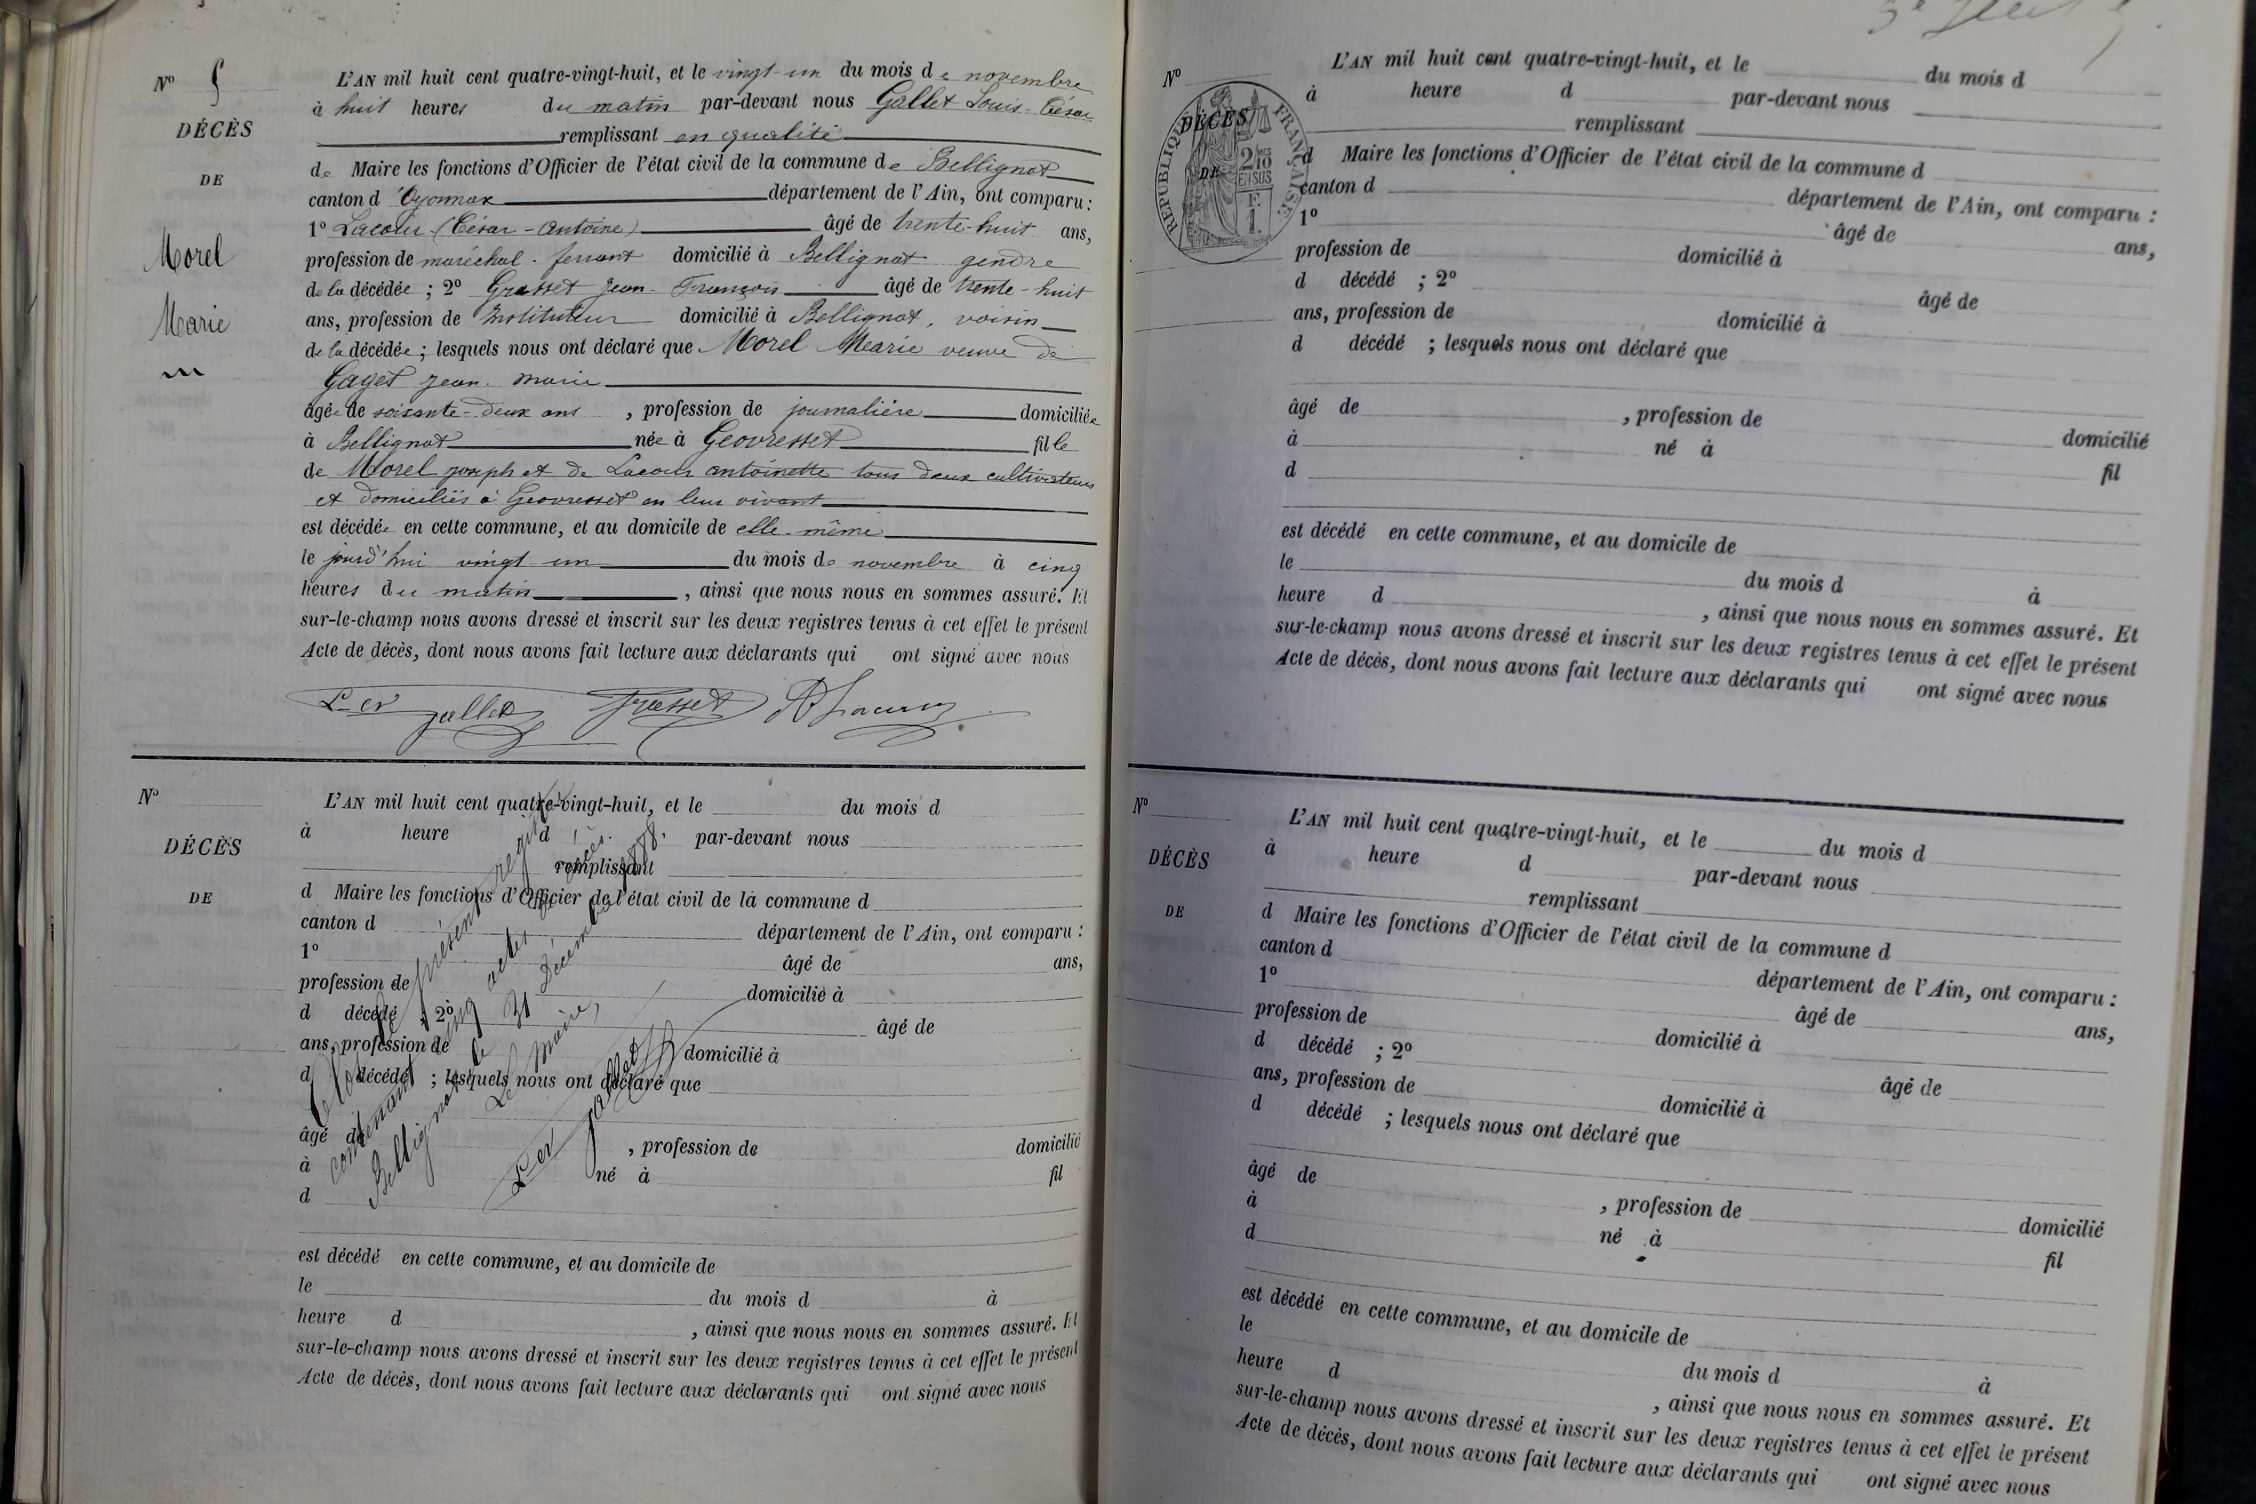 Nº 5
DÉCÈS
DE
Morel
Marie
L'AN mil huit cent quatre-vingt-huit, et le vingt-un du mois de novembre
à huit heures du matin par-devant nous Gallet Louis-César
remplissant en qualité
de Maire les fonctions d'Officier de l'état civil de la commune de Bellignat
canton d'Oyonnax département de l'Ain, ont comparu :
1º Lacour (César-Antoine) âgé de trente-huit ans,
profession de maréchal-ferrant domicilié à Bellignat gendre
de la décédée ; 2º Grasset Jean-François âgé de trente-huit
ans, profession de Instituteur domicilié à Bellignat, voisin
de la décédée ; lesquels nous ont déclaré que Morel Marie veuve de
Gaget Jean-Marie
âgée de soixante-deux ans, profession de journalière domiciliée
à Bellignat née à Géovresset fille
de Morel Joseph et de Lacour Antoinette tous deux cultivateurs
et domiciliés à Géovresset en leur vivant
est décédée en cette commune, et au domicile de elle-même
le jourd'hui vingt un du mois de novembre à cinq
heures du matin, ainsi que nous nous en sommes assuré. Et
sur-le-champ nous avons dressé et inscrit sur les deux registres tenus à cet effet le présent
Acte de décès, dont nous avons fait lecture aux déclarants qui ont signé avec nous
Gallet Grasset Lacour
Nº
DÉCÈS
DE
L'AN mil huit cent quatre-vingt-huit, et le du mois d
à heure d par-devant nous
remplissant
d Maire les fonctions d'Officier de l'état civil de la commune d
canton d département de l'Ain, ont comparu :
1º âgé de ans,
profession de domicilié à
d décédé ; 2º âgé de
ans, profession de domicilié à
d décédé ; lesquels nous ont déclaré que
âgé de , profession de domicilié
à né à fil
d
est décédé en cette commune, et au domicile de
le du mois d à
heure d , ainsi que nous nous en sommes assuré. Et
sur-le-champ nous avons dressé et inscrit sur les deux registres tenus à cet effet le présent
Acte de décès, dont nous avons fait lecture aux déclarants qui ont signé avec nous
Clos le présent registre
contenant cinq actes de décès.
Bellignat le 31 Décembre 1888.
Le Maire,
Gallet
Nº
DÉCÈS
DE
RÉPUBLIQUE FRANÇAISE
2/10 EN SUS
F. 1.
L'AN mil huit cent quatre-vingt-huit, et le du mois d
à heure d par-devant nous
remplissant
d Maire les fonctions d'Officier de l'état civil de la commune d
canton d département de l'Ain, ont comparu :
1º âgé de ans,
profession de domicilié à
d décédé ; 2º âgé de
ans, profession de domicilié à
d décédé ; lesquels nous ont déclaré que
âgé de , profession de domicilié
à né à fil
d
est décédé en cette commune, et au domicile de
le du mois d à
heure d , ainsi que nous nous en sommes assuré. Et
sur-le-champ nous avons dressé et inscrit sur les deux registres tenus à cet effet le présent
Acte de décès, dont nous avons fait lecture aux déclarants qui ont signé avec nous
Nº
DÉCÈS
DE
L'AN mil huit cent quatre-vingt-huit, et le du mois d
à heure d par-devant nous
remplissant
d Maire les fonctions d'Officier de l'état civil de la commune d
canton d département de l'Ain, ont comparu :
1º âgé de ans,
profession de domicilié à
d décédé ; 2º âgé de
ans, profession de domicilié à
d décédé ; lesquels nous ont déclaré que
âgé de , profession de domicilié
à né à fil
d
est décédé en cette commune, et au domicile de
le du mois d à
heure d , ainsi que nous nous en sommes assuré. Et
sur-le-champ nous avons dressé et inscrit sur les deux registres tenus à cet effet le présent
Acte de décès, dont nous avons fait lecture aux déclarants qui ont signé avec nous